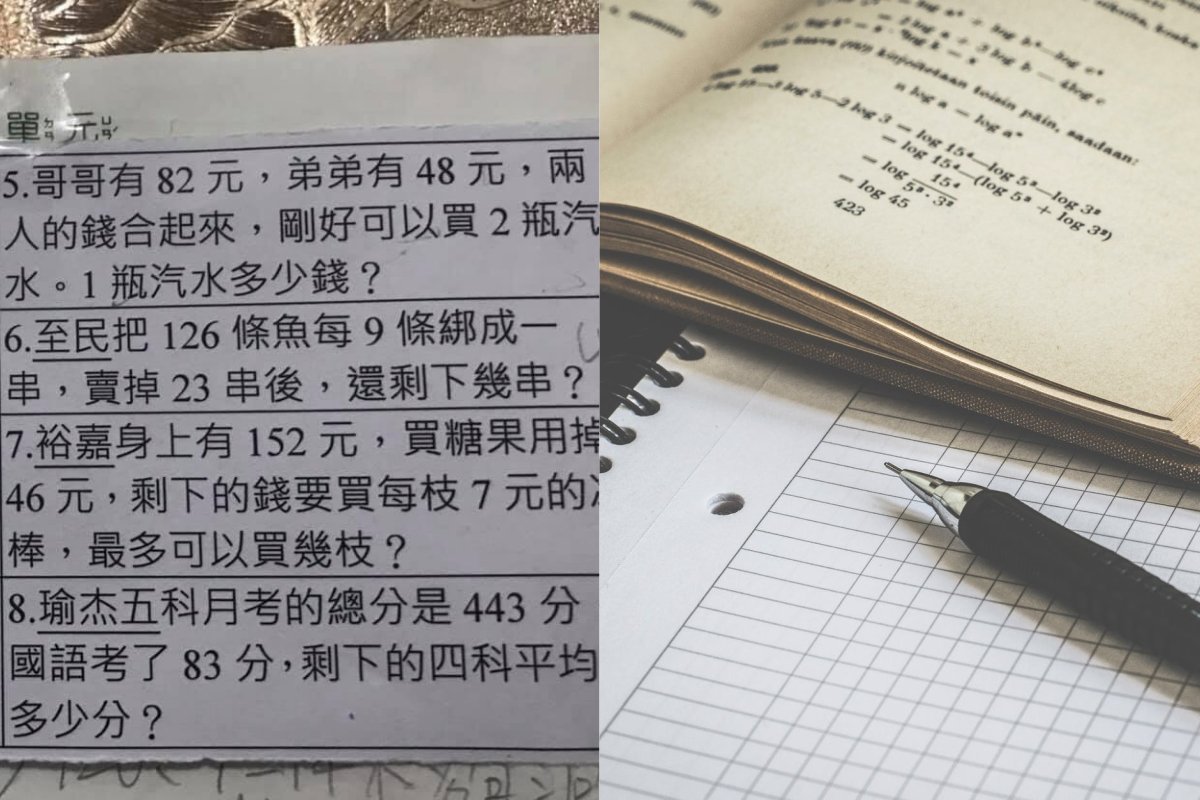 單元
5.哥哥有 82 元，弟弟有 48 元，兩
人的錢合起來，剛好可以買 2 瓶汽
水。1 瓶汽水多少錢？
6.至民把 126 條魚每 9 條綁成一
串，賣掉 23 串後，還剩下幾串？
7.裕嘉身上有 152 元，買糖果用掉
46 元，剩下的錢要買每枝 7 元的
棒，最多可以買幾枝？
8.瑜杰五科月考的總分是 443 分
國語考了 83 分，剩下的四科平均
多少分？
kirjoitetaan toisin päin, saadaan:
n log a — log aⁿ
log 5—2 log 3 — log 15⁴—log 5³—log 3²
— log 15⁴—(log 5³ + log 3²)
— log 15⁴
5³ · 3²
— log 45
423